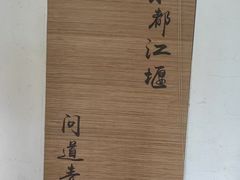 都江堰
问道青